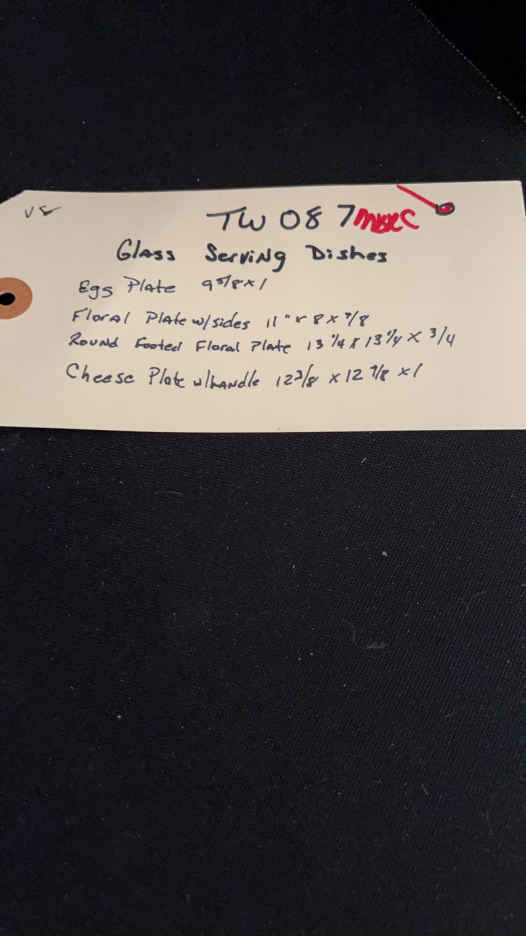 TW 08 7
Glass Serving Dishes
Egg Plate 9 5/8 x 1
Floral Plate w/sides 11" x 8 x 7/8
Round Footed Floral Plate 13 1/4 x 13 1/4 x 3/4
Cheese Plate w/handle 12 3/8 x 12 7/8 x 1